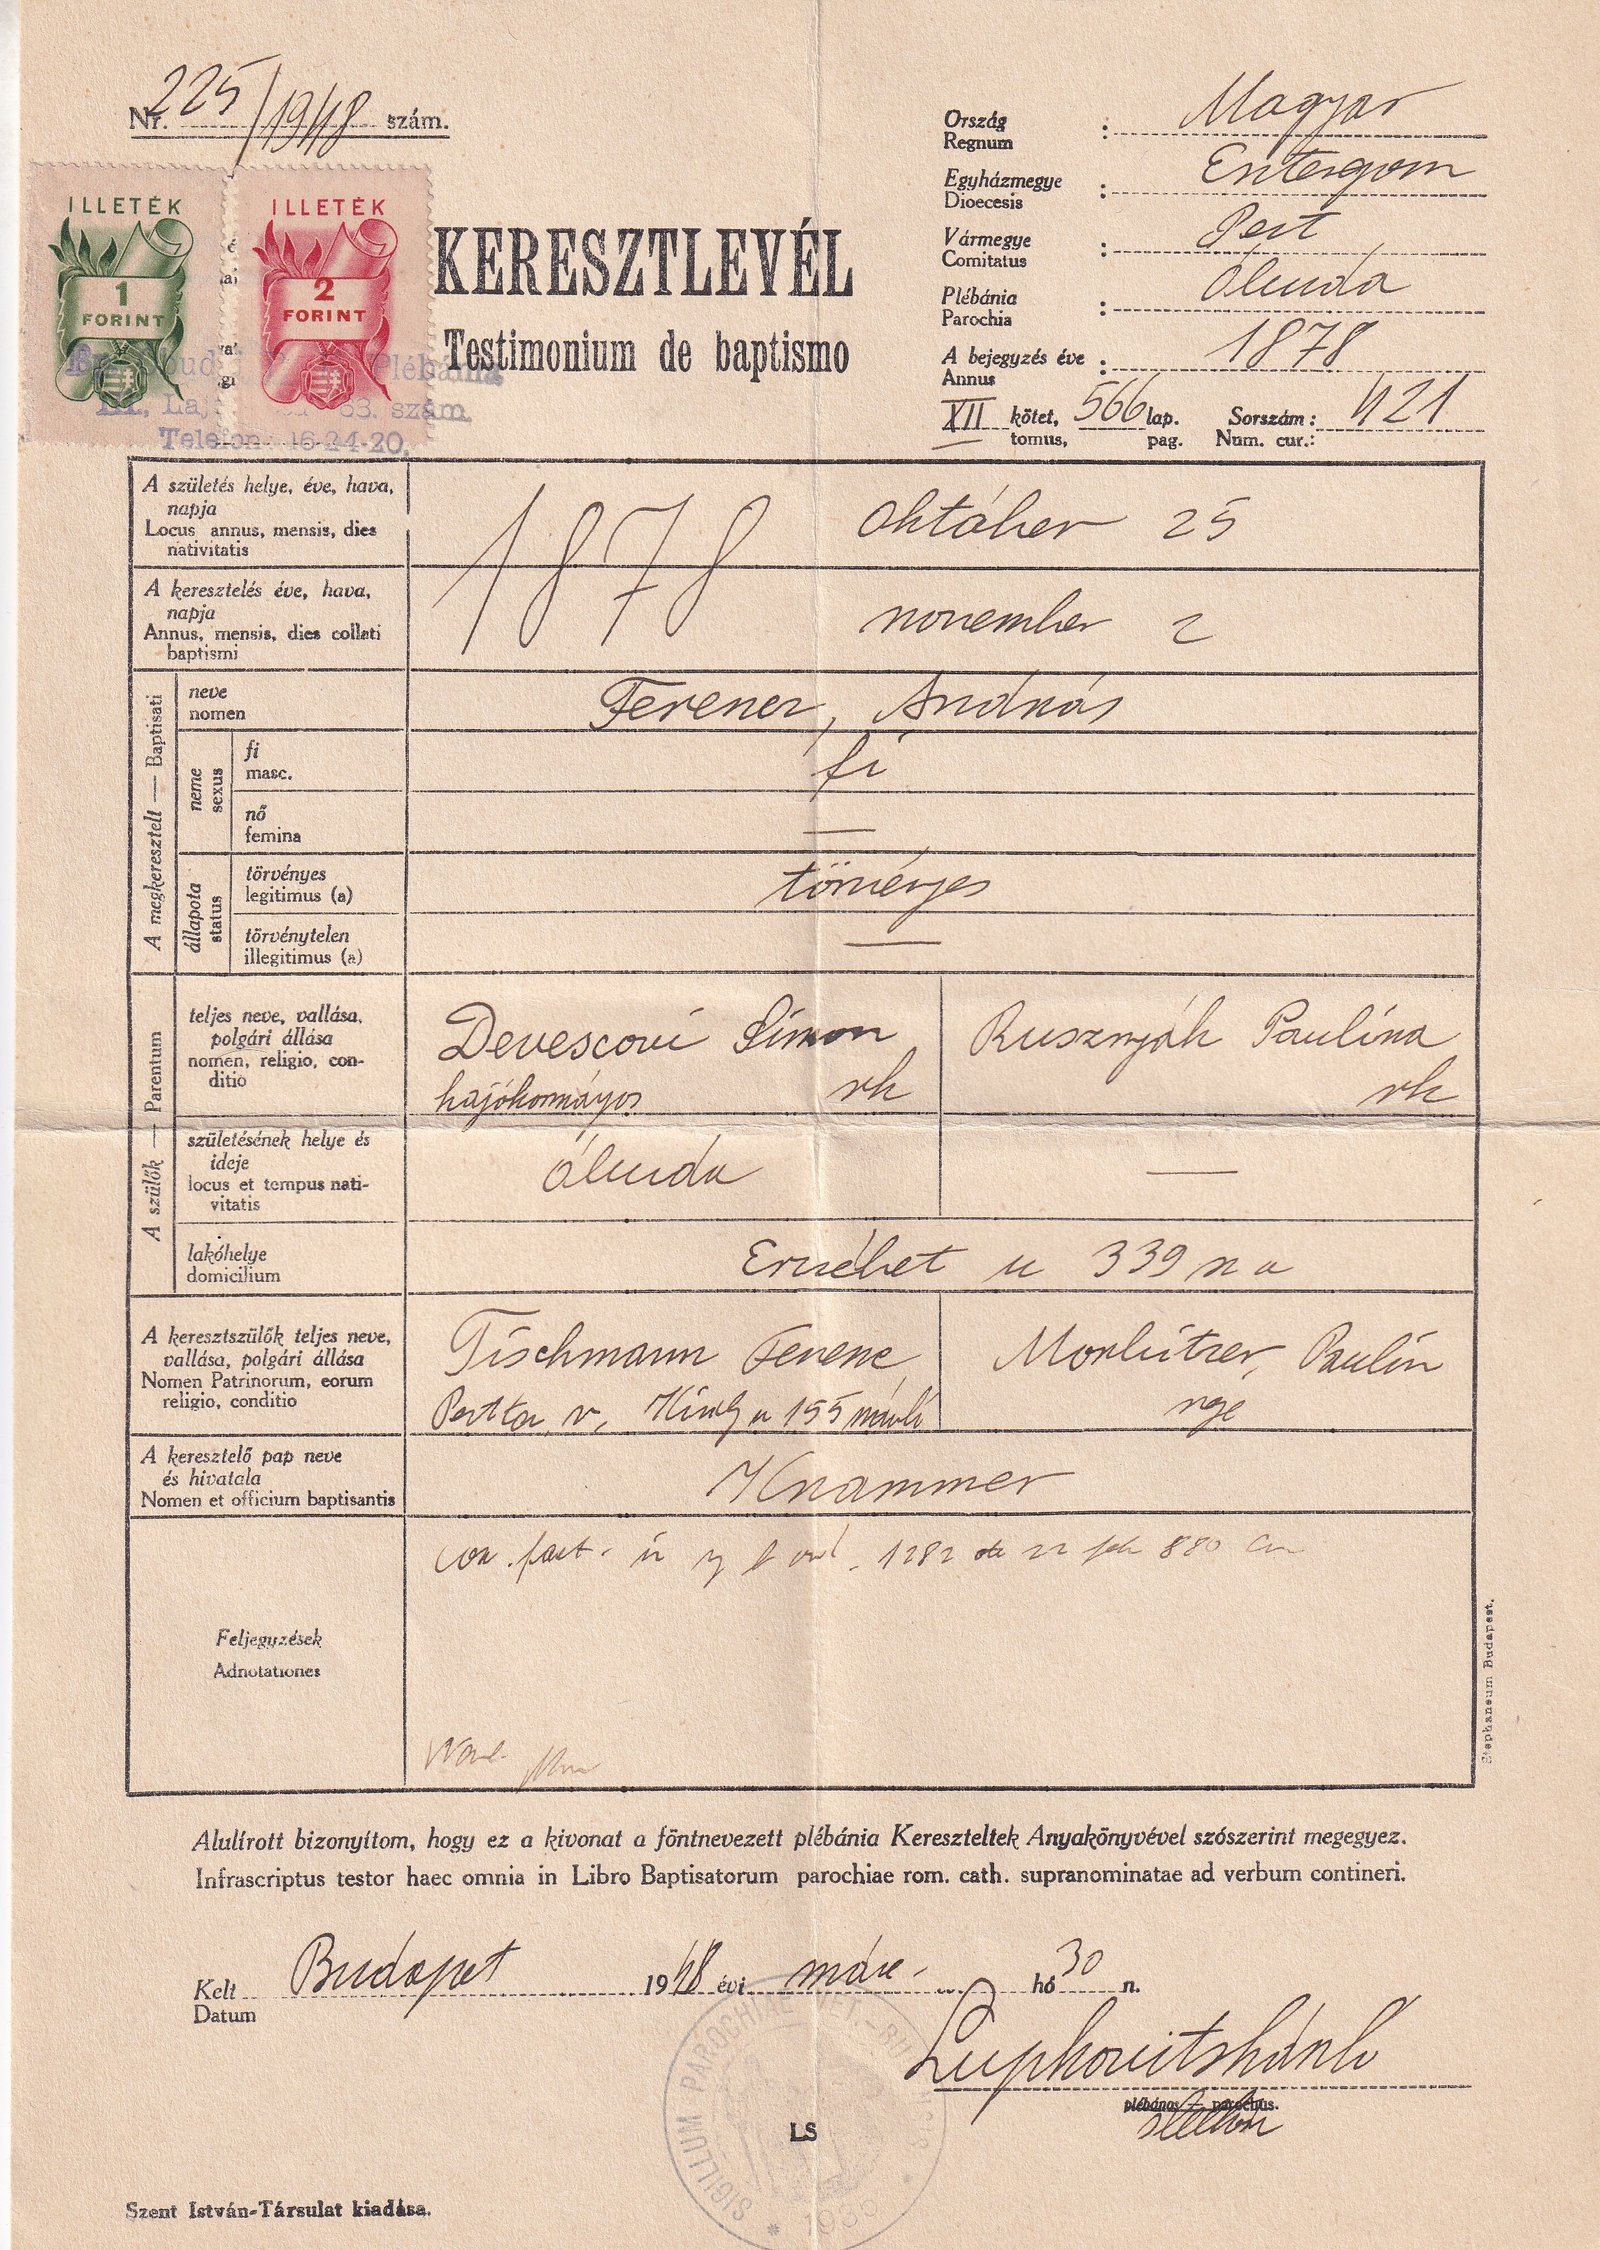 Nr. 225/1948 szám.
Ország
Regnum : Magyar
Egyházmegye
Dioecesis : Esztergom
Vármegye
Comitatus : Pest
Plébánia
Parochia : Óbuda
A bejegyzés éve
Annus : 1878
XII kötet, 566 lap. Sorszám: 421
tomus, pag. Num. cur.:
ILLETÉK
1
FORINT
ILLETÉK
2
FORINT
Plébánia
III., Laj 63. szám
Telefon 16-24-20.
KERESZTLEVÉL
Testimonium de baptismo
A születés helye, éve, hava,
napja
Locus annus, mensis, dies
nativitatis
1878 október 25
A keresztelés éve, hava,
napja
Annus, mensis, dies collati
baptismi
november 2
A megkeresztelt — Baptisati
neve
nomen
Ferencz, András
neme
sexus
fi
masc.
fi
nő
femina
—
állapota
status
törvényes
legitimus (a)
törvényes
törvénytelen
illegitimus (a)
—
A szülők — Parentum
teljes neve, vallása,
polgári állása
nomen, religio, con-
ditio
Devescovi Simon
hajókormányos rk
Rusznyák Paulina
rk
születésének helye és
ideje
locus et tempus nati-
vitatis
Óbuda
—
lakóhelye
domicilium
Erzsébet u 339 sz a
A keresztszülők teljes neve,
vallása, polgári állása
Nomen Patrinorum, eorum
religio, conditio
Tischmann Ferenc
u 155
Paulin
A keresztelő pap neve
és hivatala
Nomen et officium baptisantis
Knammer
Feljegyzések
Adnotationes
1282 22 880
Alulírott bizonyítom, hogy ez a kivonat a föntnevezett plébánia Kereszteltek Anyakönyvével szószerint megegyez.
Infrascriptus testor haec omnia in Libro Baptisatorum parochiae rom. cath. supranominatae ad verbum contineri.
Kelt Budapest 1948 évi márc. hó 30 n.
Datum
plébános — parochus.
LS
SIGILLUM PAROCHIAE VET.-BU
Szent István-Társulat kiadása.
Stephaneum Budapest.